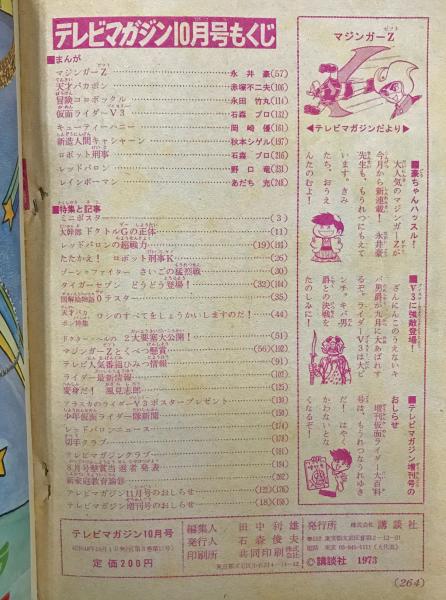 テレビマガジン10月号もくじ
■まんが
マジンガーZ 永井 豪(57)
天才バカボン 赤塚不二夫(106)
冒険コロボックル 永田 竹丸(114)
仮面ライダーV3 石森 プロ(132)
キューティーハニー 岡崎 優(161)
新造人間キャシャーン 秋本シゲル(197)
ロボット刑事 石森 プロ(216)
レッドバロン 野口 竜(231)
レインボーマン あだち 充(248)
■特集と記事
ミニポスター (3)
大幹部 ドクトルGの正体 (11)
レッドバロンの超戦力 (19)
たたかえ! ロボット刑事K (26)
ゾーン=ファイター さいごの猛烈戦 (20)
タイガーセブン どうどう登場! (32)
図解絵物語 0テスター (35)
天才バカボン特集 ワシのすべてをしょうかいしますのだ! (44)
ドクター=ヘルの 2大要塞大公開! (51)
マジンガーZとくべつ懸賞 (56)(192)
テレビ人気番組ひみつ情報 (91)
ライダー最新情報 (102)
変身だ! 風見志郎 (125)
アラスカのライダーV3ポスタープレゼント (130)
少年仮面ライダー隊新聞 (150)
レッドバロンニュース (174)
切手クラブ (178)
テレビマガジンクラブ (181)
8月号懸賞当選者発表 (194)
新家庭教育論
テレビマガジン11月号のおしらせ (12)(176)
テレビマガジン増刊号のおしらせ (18)(160)
マジンガーZ
◀テレビマガジンだより▶
■豪ちゃんハッスル!
大人気のマジンガーZが
今月から新連載! 永井豪
先生も、もうれつにもえて
います。きみ
たち、おうえ
んたのむよ!
■V3に強敵登場!
ざんにんこのうえないキ
バ男爵が九月に大あばれす
るぞ。ライダーV3は大ピ
ンチ! キバ男
爵との決戦を
たのしみに!
■テレビマガジン増刊号の
おしらせ
増刊仮面ライダー大百科
号は、もうれつなうれゆき
だ! はやく
かわないとな
くなるぞ!
テレビマガジン10月号
定価200円
編集人 田中利雄
発行人 石森俊夫
印刷所 共同印刷株式会社
発行所 株式会社 講談社
©講談社 1973
(264)